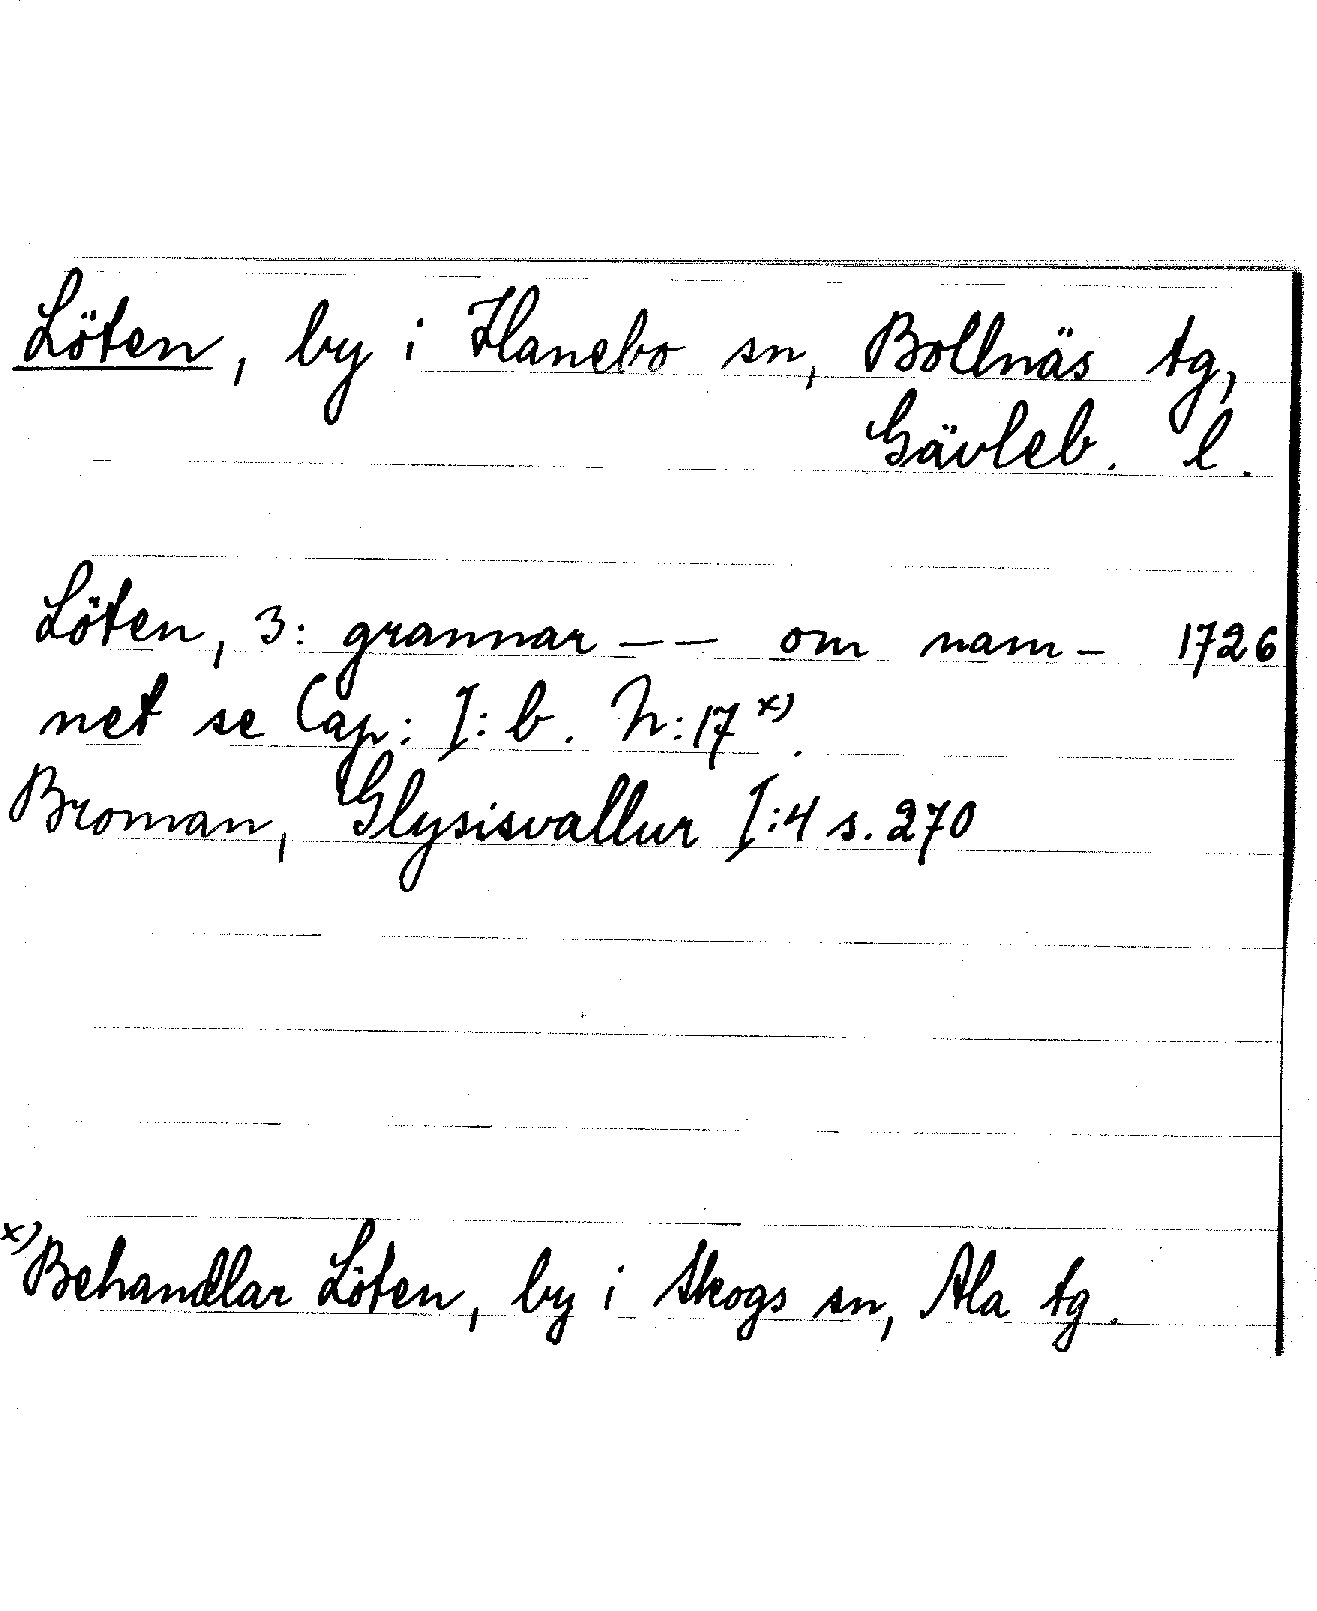 Löten, by i Hanebo sn, Bollnäs tg,
Gävleb. l.
Löten, 3: grannar -- om nam- 1726
net se Cap: I: b. N: 17 x).
Broman, Glysisvallur I:4 s. 270
x) Behandlar Löten, by i Skogs sn, Ala tg.